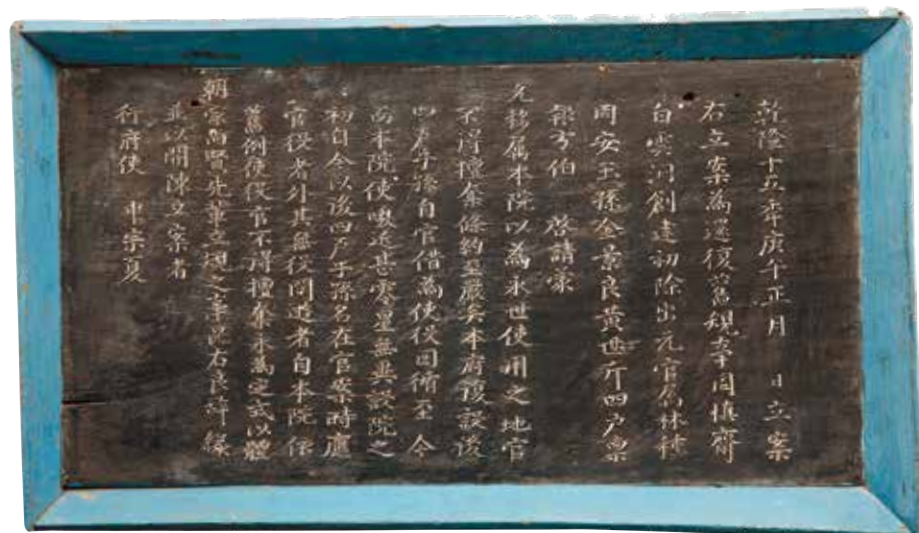 乾隆十五年庚午正月 日立案
右立案爲遵復舊規事周愼齋
白雲洞創建初除出元官屬林種
周安玉孫金景良黃世斤四戶稟
報方伯 啓請蒙
允移屬本院以爲永世使用之地官
不得擅奪條約至嚴矣本府復設後
四戶子孫自官借爲使役因循至今
而本院使喚近甚零星無異設院之
初自今以後四戶子孫名在官案時應
官役者外其無役閑遊者自本院依
舊例使役官不得擅奪永爲定式以體
朝家尚賢先輩立規之事是右良詳錄
並以開陳立案者
行府使 申宗夏